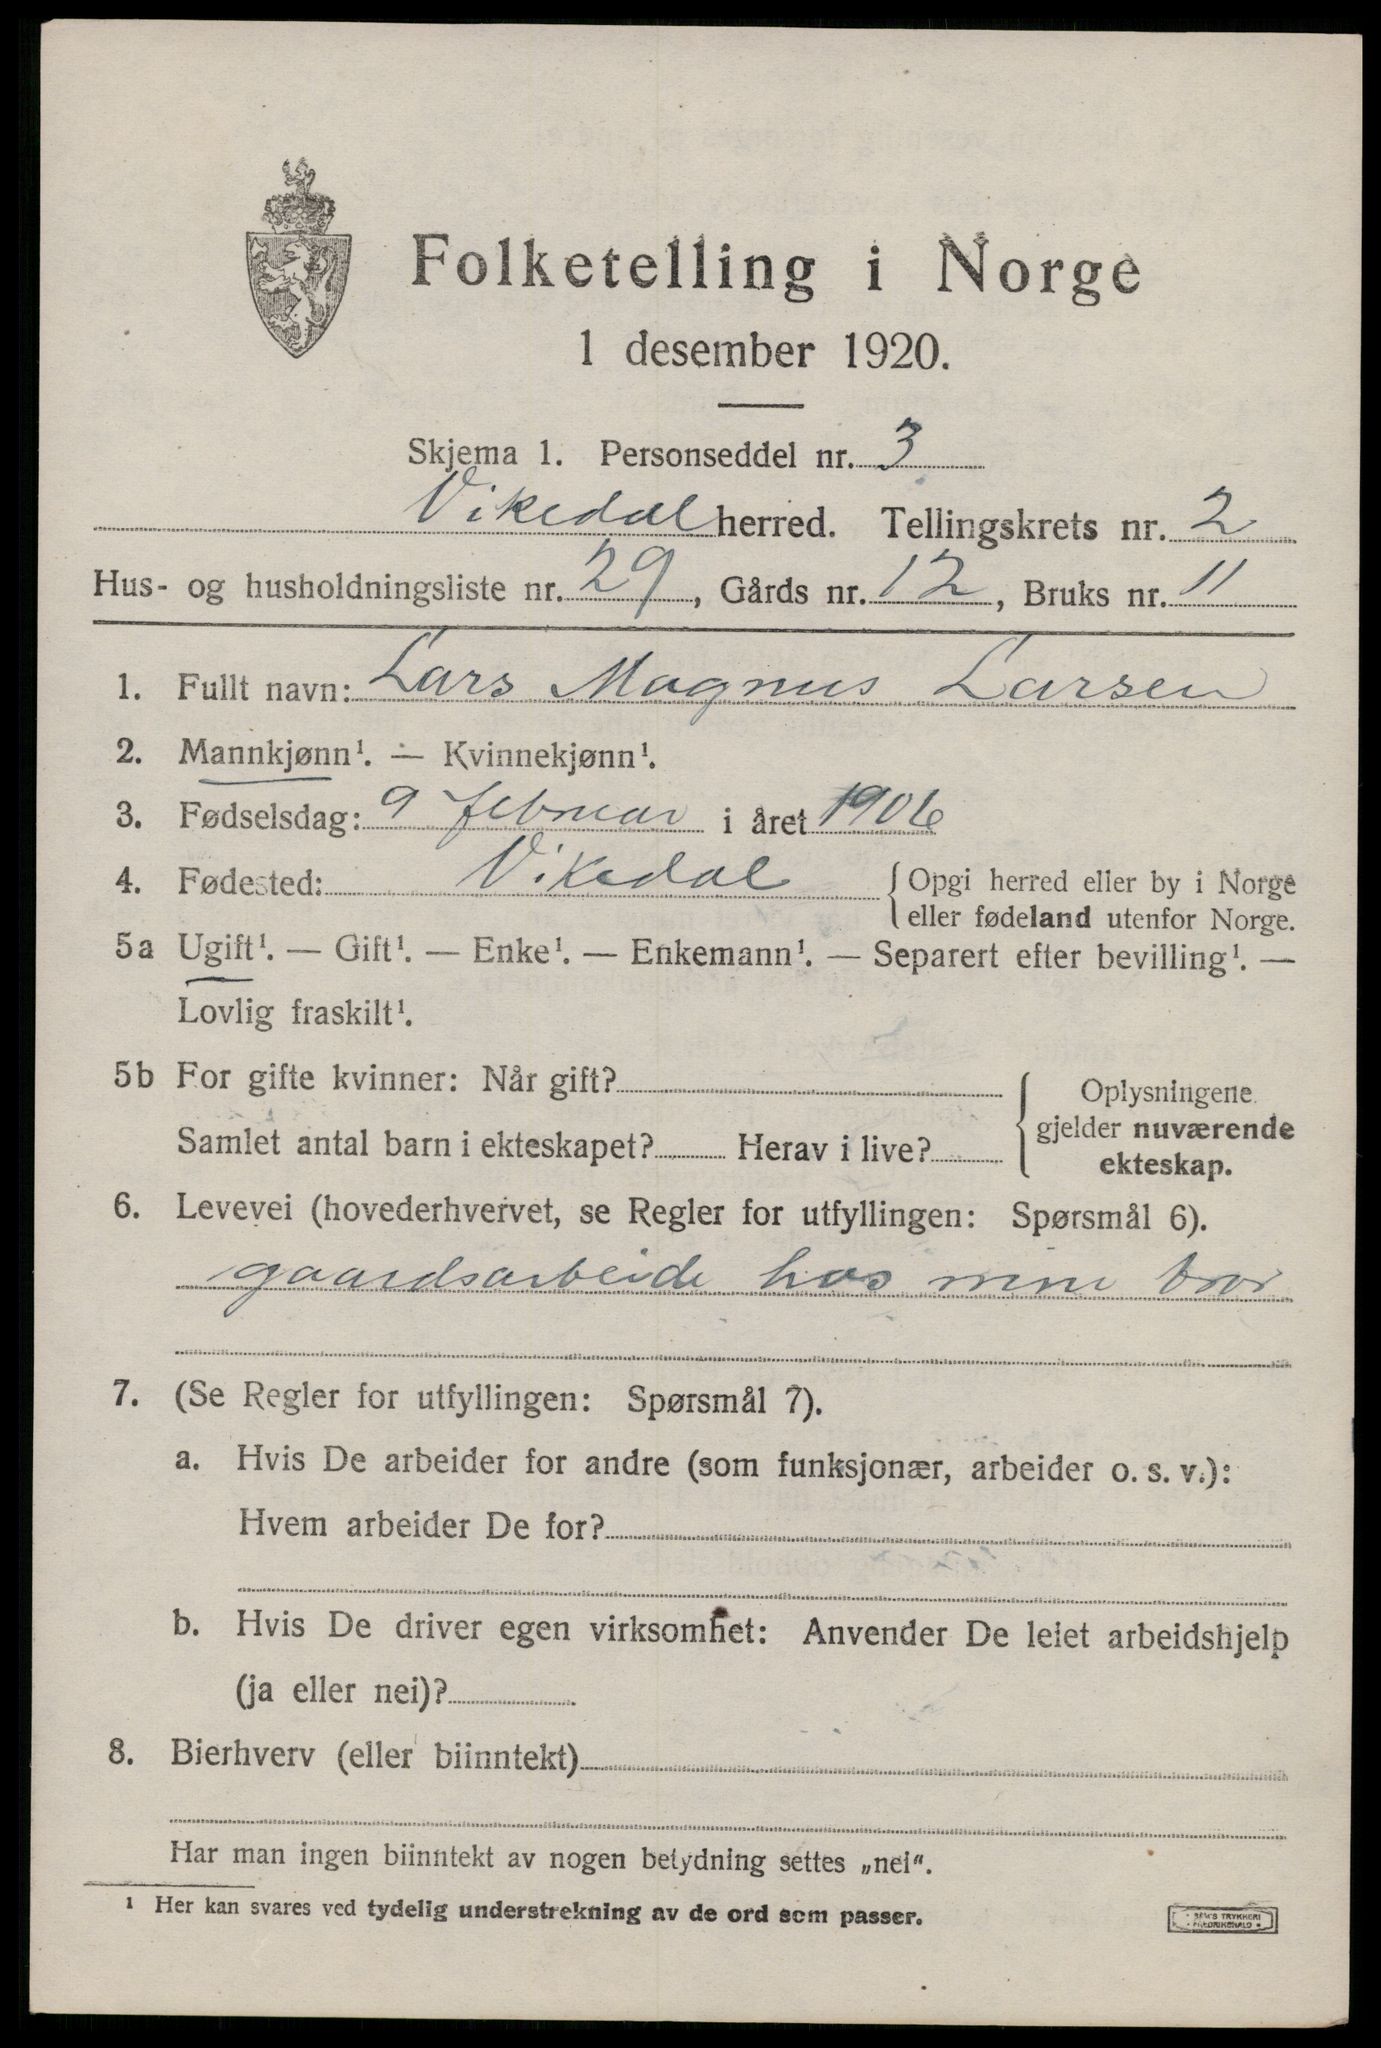 Folketelling i Norge
1 desember 1920.
Skjema 1. Personseddel nr. 3
Vikedal herred. Tellingskrets nr. 2
Hus- og husholdningsliste nr. 29, Gårds nr. 12, Bruks nr. 11
1. Fullt navn: Lars Magnus Larsen
2. Mannkjønn¹. — Kvinnekjønn¹.
3. Fødselsdag: 9 februar i året 1906
4. Fødested: Vikedal { Opgi herred eller by i Norge
eller fødeland utenfor Norge.
5a Ugift¹. — Gift¹. — Enke¹. — Enkemann¹. — Separert efter bevilling¹. —
Lovlig fraskilt¹.
5b For gifte kvinner: Når gift?
Samlet antal barn i ekteskapet? Herav i live?
Oplysningene
gjelder nuværende
ekteskap.
6. Levevei (hovederhvervet, se Regler for utfyllingen: Spørsmål 6).
gaardsarbeide hos mine
7. (Se Regler for utfyllingen: Spørsmål 7).
a. Hvis De arbeider for andre (som funksjonær, arbeider o. s. v.):
Hvem arbeider De for?
b. Hvis De driver egen virksomhet: Anvender De leiet arbeidshjelp
(ja eller nei)?
8. Bierhverv (eller biinntekt)
Har man ingen biinntekt av nogen betydning settes „nei“.
¹ Her kan svares ved tydelig understrekning av de ord som passer.
TRYKKERI
FREDRIKSHALD